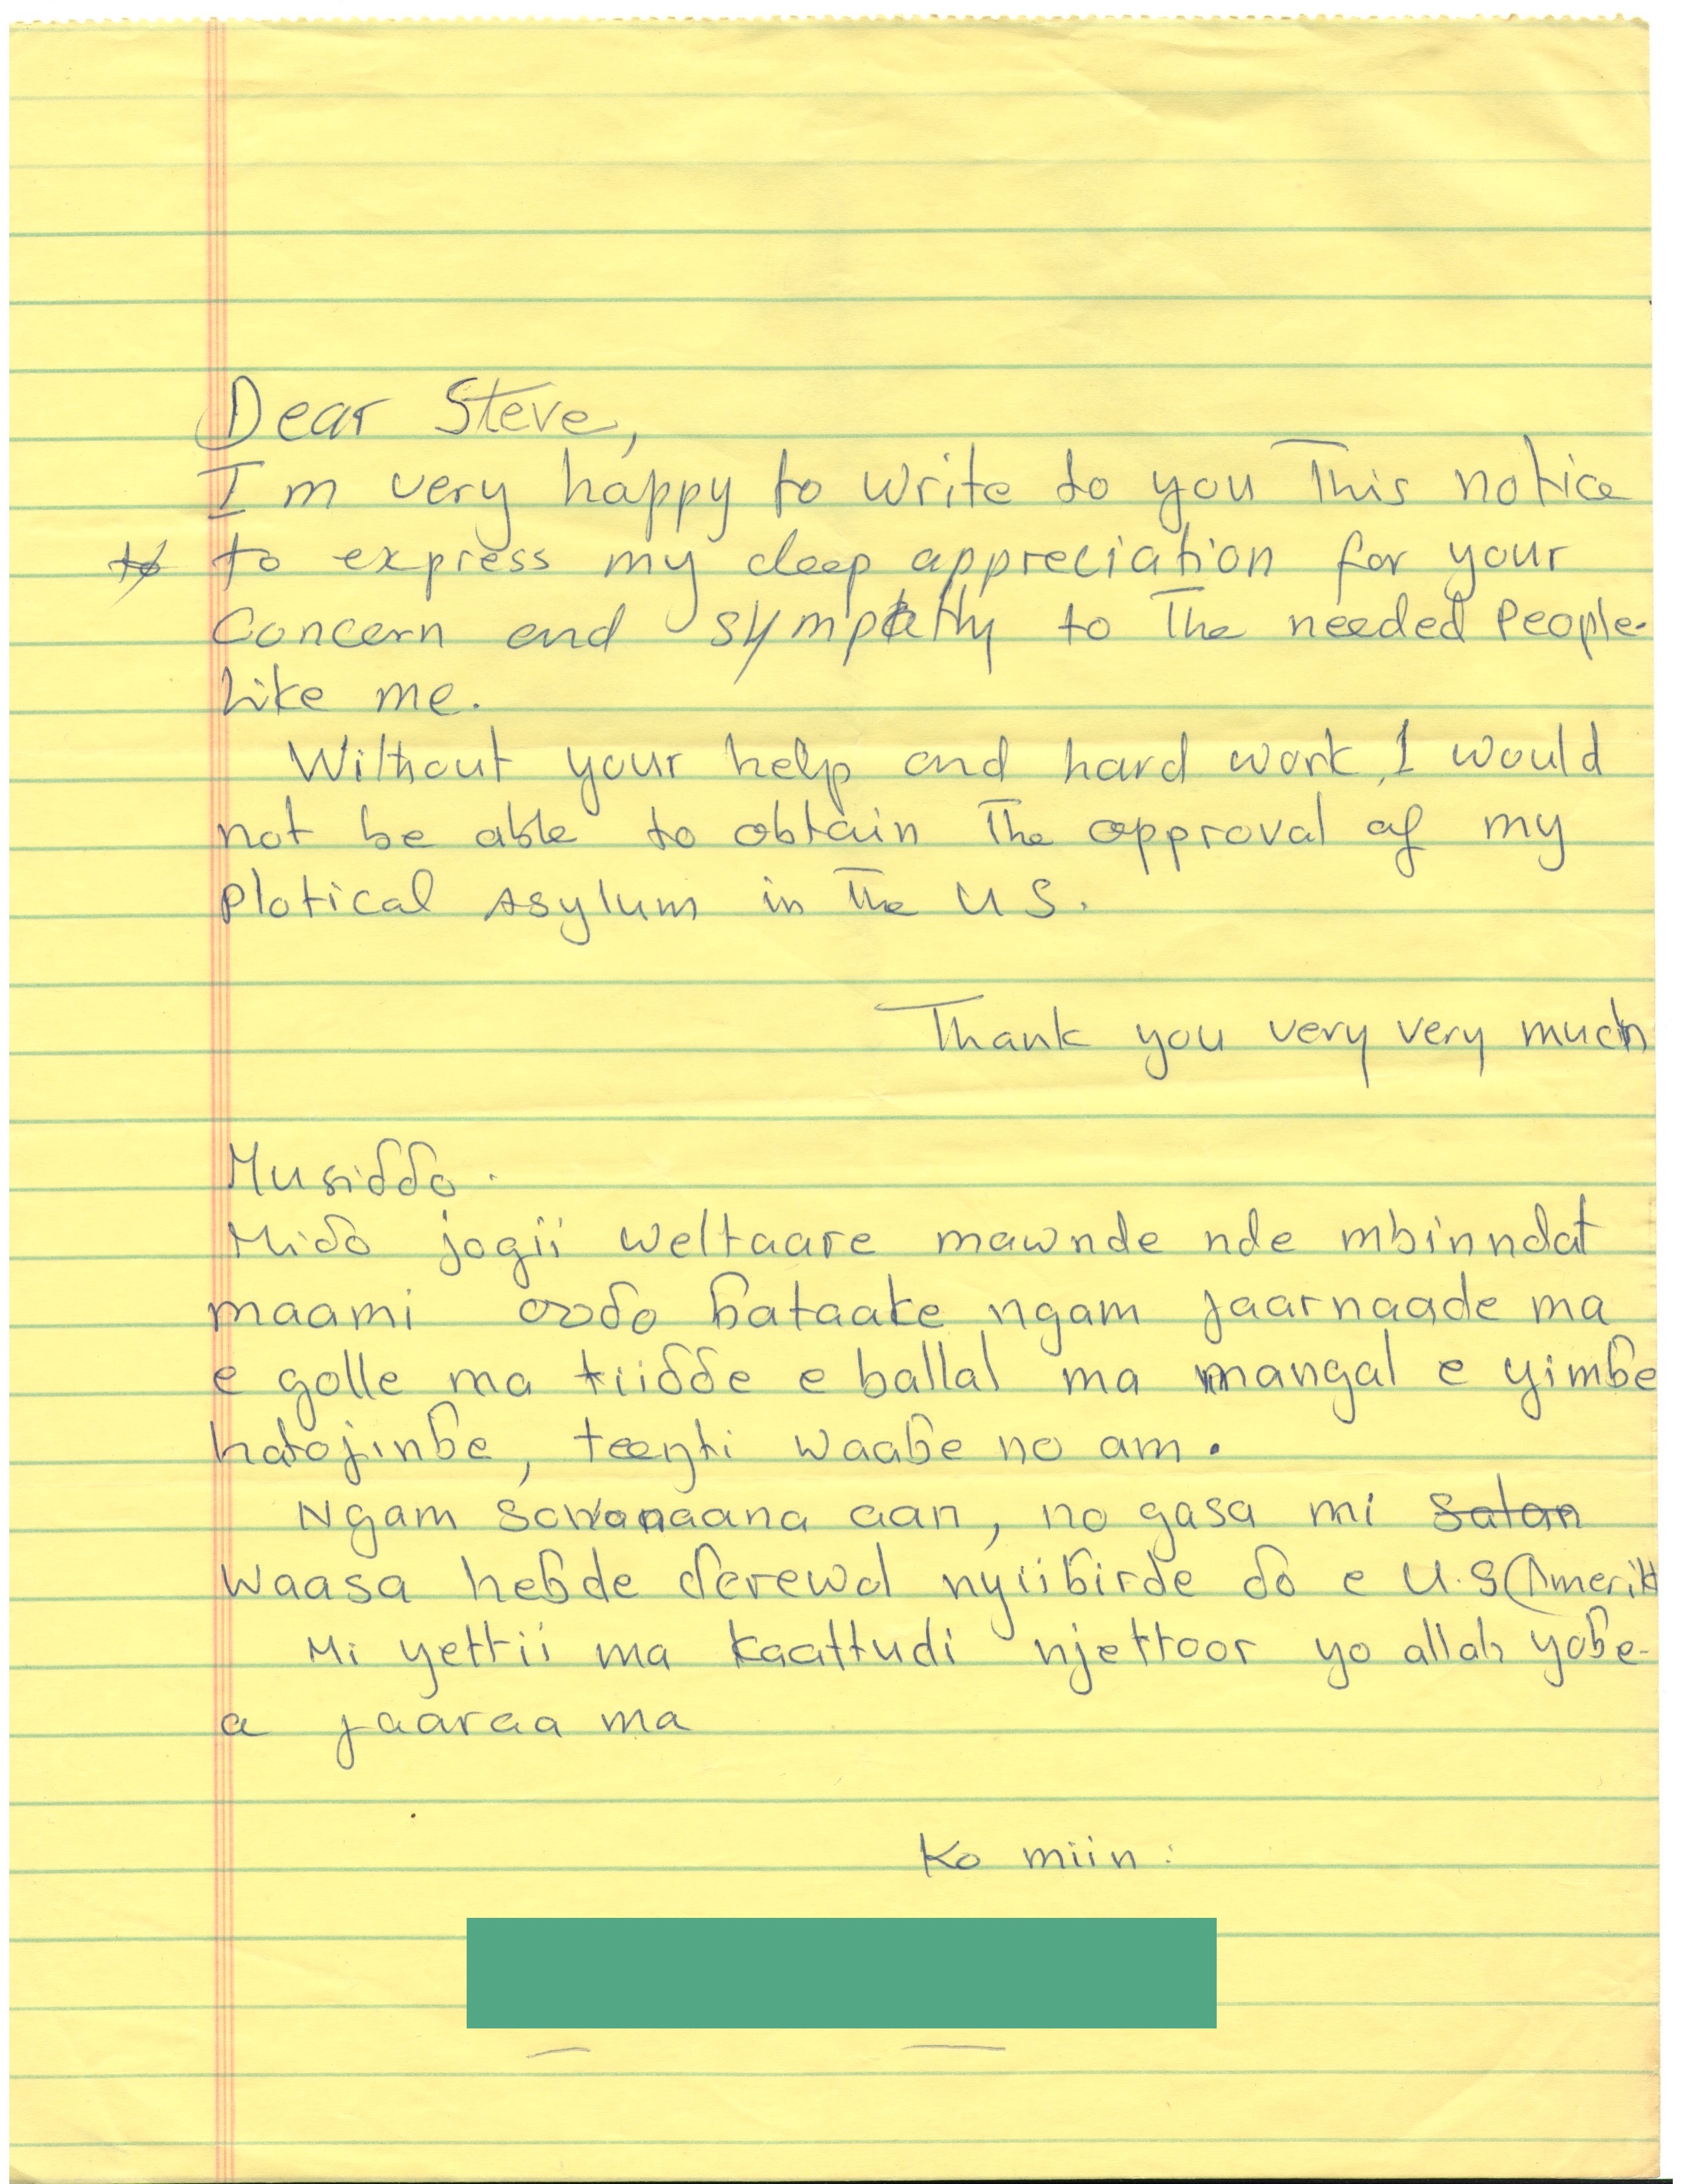 Dear Steve,
I m very happy to write to you This notice
to express my deep appreciation for your
Concern and sympathy to The needed People
like me.
Without your help and hard work, I would
not be able to obtain The approval of my
plotical Asylum in The U S.
Thank you very very much
Musiɗɗo.
Miɗo jogii weltaare mawnde nde mbinndat
maami ooɗo ɓataake ngam jaarnaade ma
e golle ma tiiɗɗe e ballal ma mangal e yimɓe
hatojinɓe, teeŋti waaɓe no am.
Ngam aan, no gasa mi satan
waasa heɓde ɗerewol nyiiɓirde ɗo e U.S (Amerik
Mi yettii ma kaattudi njettoor yo allah yoɓe-
a jaaraa ma
Ko miin: